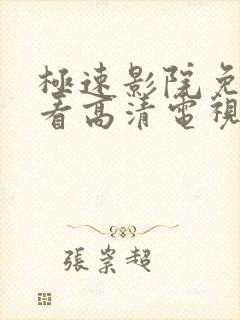 極速影院免
看高清電視
張崇超